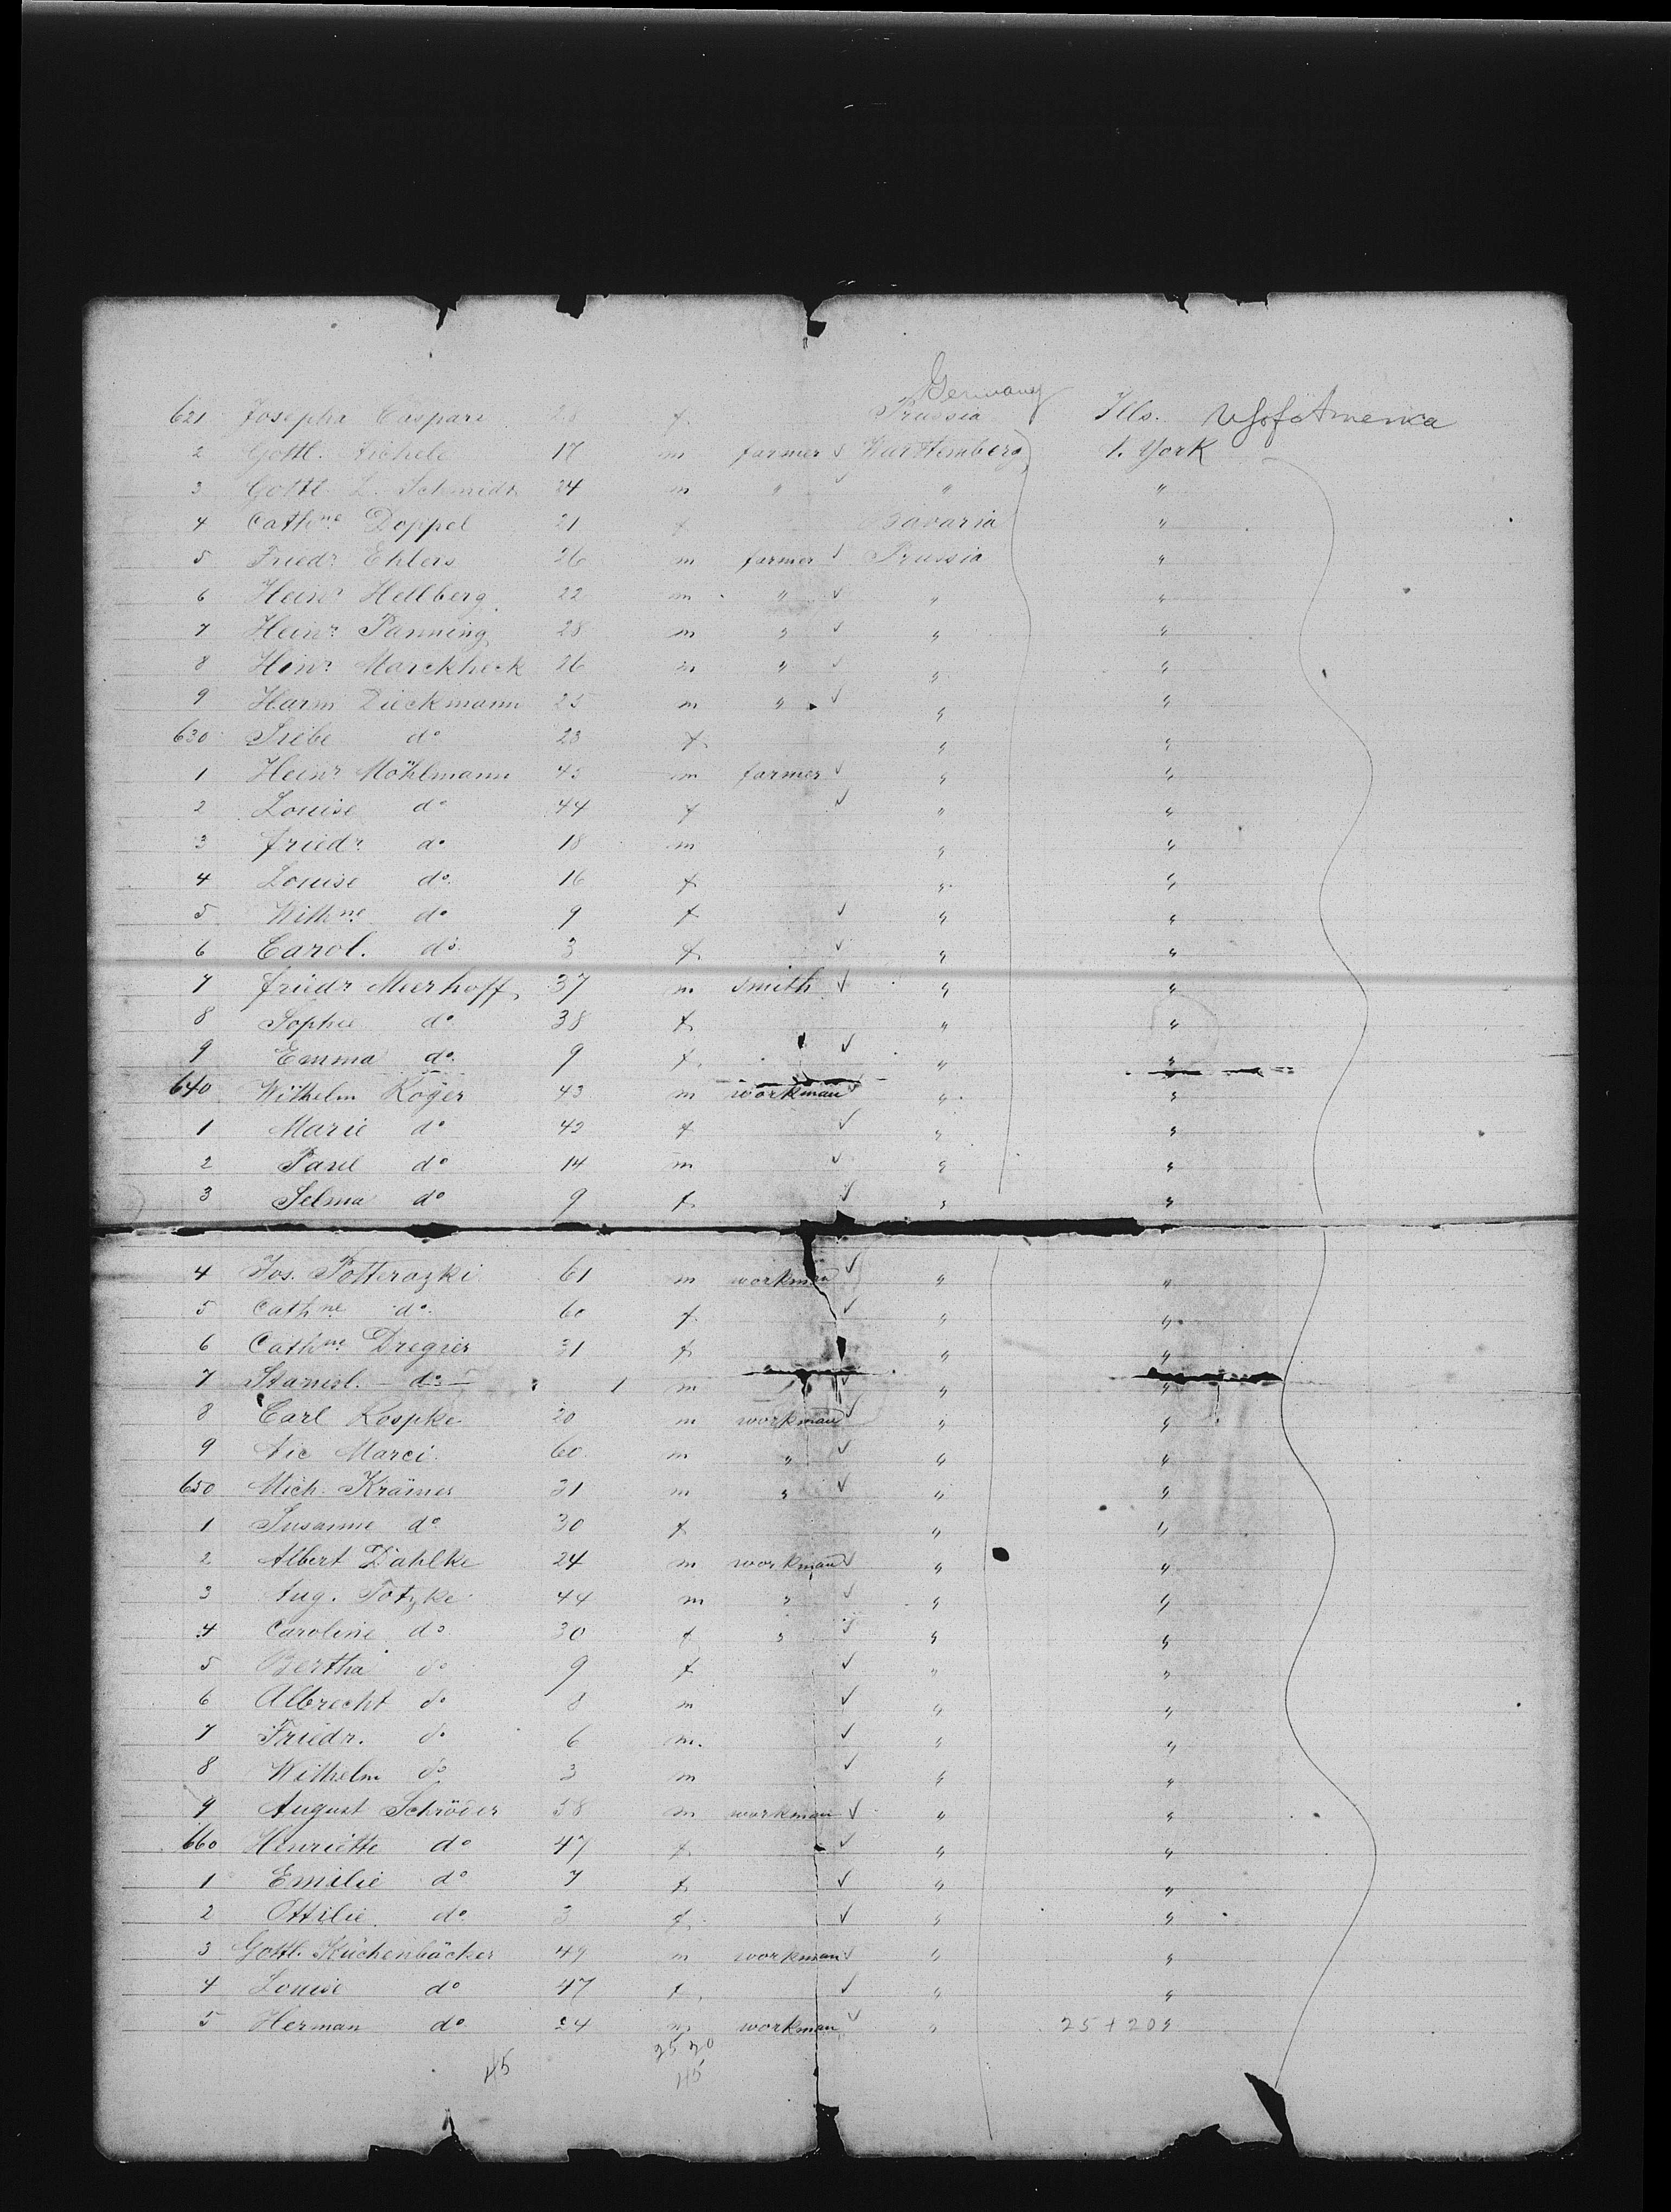 Germany
621 Josepha Caspari 28 f Prussia Ills. US of America
2 Gottl. Aichele 17 m farmer ✓ Württemberg N. York
3 Gottl. L. Schmidt 24 m " ✓ " "
4 Cathne Doppel 21 f Bavaria "
5 Friedr Ehlers 26 m farmer ✓ Prussia "
6 Heinr Hellberg 22 m " ✓ " "
7 Heinr Panning 28 m " ✓ " "
8 Hinr Marckheck 26 m " ✓ " "
9 Harm Dieckmann 25 m " ✓ " "
630 Siebe do 23 f " "
1 Heinr Möhlmann 45 m farmer ✓ " "
2 Louise do 44 f ✓ " "
3 Friedr do 18 m " "
4 Louise do 16 f " "
5 Wilhne do 9 f ✓ " "
6 Carol. do 3 f ✓ " "
7 Friedr Meerhoff 37 m smith ✓ " "
8 Sophie do 38 f " "
9 Emma do 9 f ✓ " "
640 Wilhelm Röger 43 m workman ✓ " "
1 Marie do 42 f ✓ " "
2 Paul do 14 m ✓ " "
3 Selma do 9 f ✓ " "
4 Jos. Potterazki 61 m workman ✓ " "
5 Cathne do 60 f ✓ " "
6 Cathne Dregier 31 f " "
7 Stanisl. do 1 m ✓ " "
8 Carl Kospke 20 m workman ✓ " "
9 Nic Marci 60 m " ✓ " "
650 Mich. Krämer 31 m " ✓ " "
1 Susanne do 30 f " "
2 Albert Dahlke 24 m workman ✓ " "
3 Aug. Totzke 44 m " ✓ " "
4 Caroline do 30 f " ✓ " "
5 Bertha do 9 f ✓ " "
6 Albrecht do 8 m ✓ " "
7 Friedr. do 6 m. ✓ " "
8 Wilhelm do 3 m ✓ " "
9 August Schröder 58 m workman ✓ " "
660 Henriette do 47 f ✓ " "
1 Emilie do 7 f ✓ " "
2 Ottilie do 3 f ✓ " "
3 Gottl. Küchenbäcker 49 m workman ✓ " "
4 Louise do 47 f ✓ " "
5 Herman do 24 m workman ✓ " 25 + 20 "
25 20
45 45